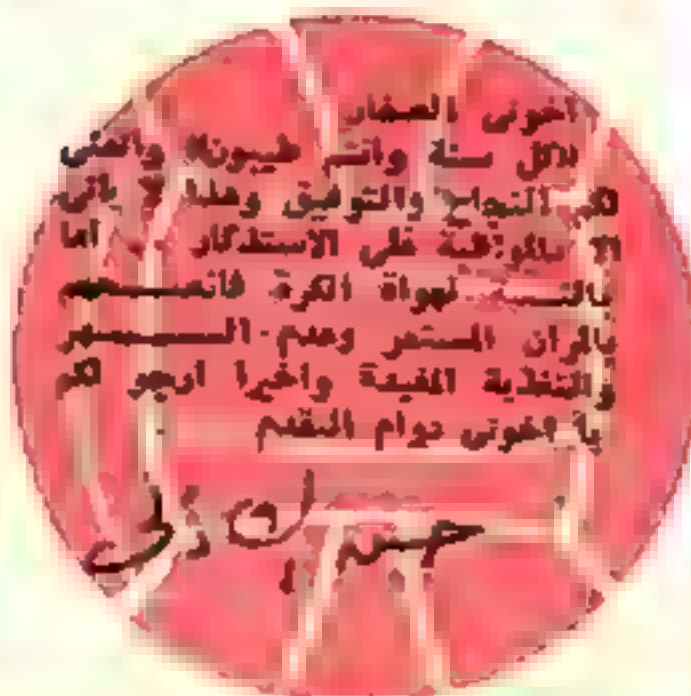 اخوتى الصغار
«كل سنة وانتم طيبون» واتمنى
لكم النجاح والتوفيق وهذا لا ياتى
الا بالمواظبة على الاستذكار . اما
بالنسبة لهواة الكرة فانصحهم
بالمران المستمر وعدم السهر
والتغذية المفيدة واخيرا ارجو لكم
يا اخوتى دوام التقدم